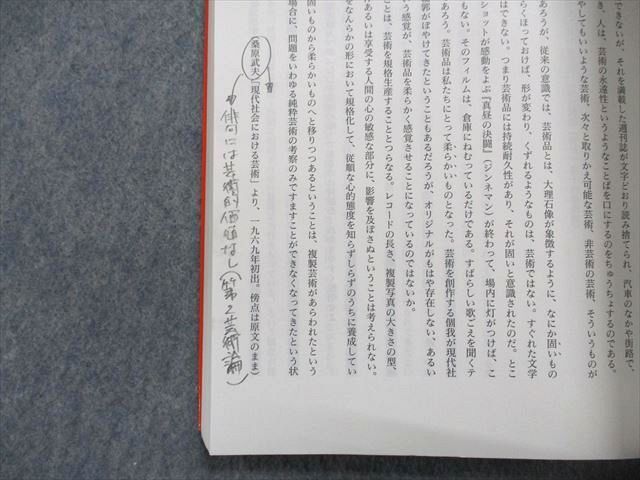 きないが、それを満載した週刊誌が文字どおり読み捨てられ、汽車のなかや街路で、
き、人は、芸術の永遠性というようなことばを口にするのをちゅうちょするのである。
やしてもいいような芸術、次々と取りかえ可能な芸術、非芸術の芸術、そういうものが
あろうが、従来の意識では、芸術品とは、大理石像が象徴するように、なにか固いもの
らくほっておけば、形が変わり、くずれるようなものは、芸術ではない。すぐれた文学
はできない。つまり芸術品には持続耐久性があり、それが固いと意識されたのだ。とこ
ショットが感動をよぶ『真昼の決闘』(ジンネマン)が終わって、場内に灯がつけば、こ
もない。そのフィルムは、倉庫にねむっているだけである。すばらしい歌ごえを聞くテ
ろう。芸術品は私たちにとって柔らかいものとなった。芸術を創作する個我が現代社
輪郭がぼやけてきたということもあるだろうが、オリジナルがもはや存在しない、あるい
いう感覚が、芸術品を柔らかく感覚させることになっているのではないか。
ことは、芸術を規格生産することとつらなる。レコードの長さ、複製写真の大きさの型、
あるいは享受する人間の心の敏感な部分に、影響を及ぼさぬということは考えられない。
をなんらかの形において規格化して、従順な心的態度を知らずしらずのうちに養成してい
固いものから柔らかいものへと移りつつあるということは、複製芸術があらわれたという
場合に、問題をいわゆる純粋芸術の考察のみですますことができなくなってきたという状
(桑原武夫「現代社会における芸術」より、一九六九年初出。傍点は原文のまま)
俳句には芸術的価値なし(第2芸術論)